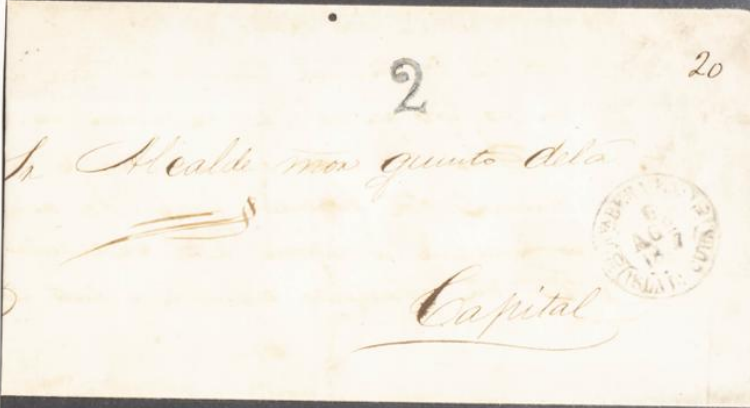 20
2
Sr Alcalde mor quinto dela
Capital